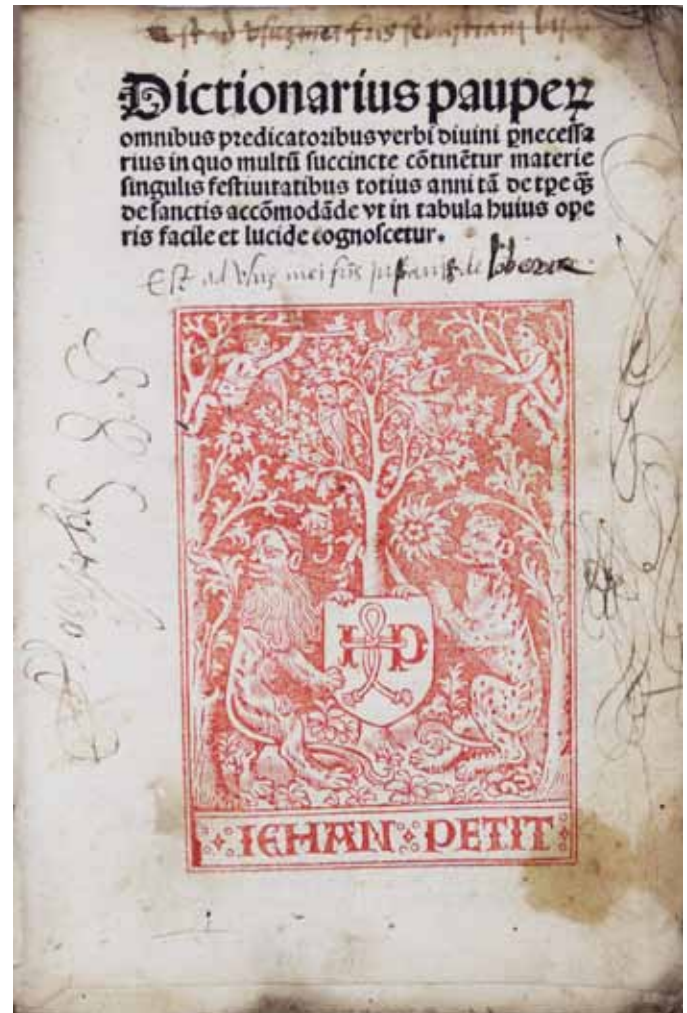 est ad vsus mei fris sebastiani
Dictionarius pauperꝝ
omnibus predicatoribus verbi diuini ꝑnecessa
rius in quo multū succincte cōtinētur materie
singulis festiuitatibus totius anni tā de tꝑe ꝙ̃
de sanctis accōmodāde vt in tabula huius ope
ris facile et lucide cognoscetur.
Est ad vsus mei fris
IP
IEHAN PETIT